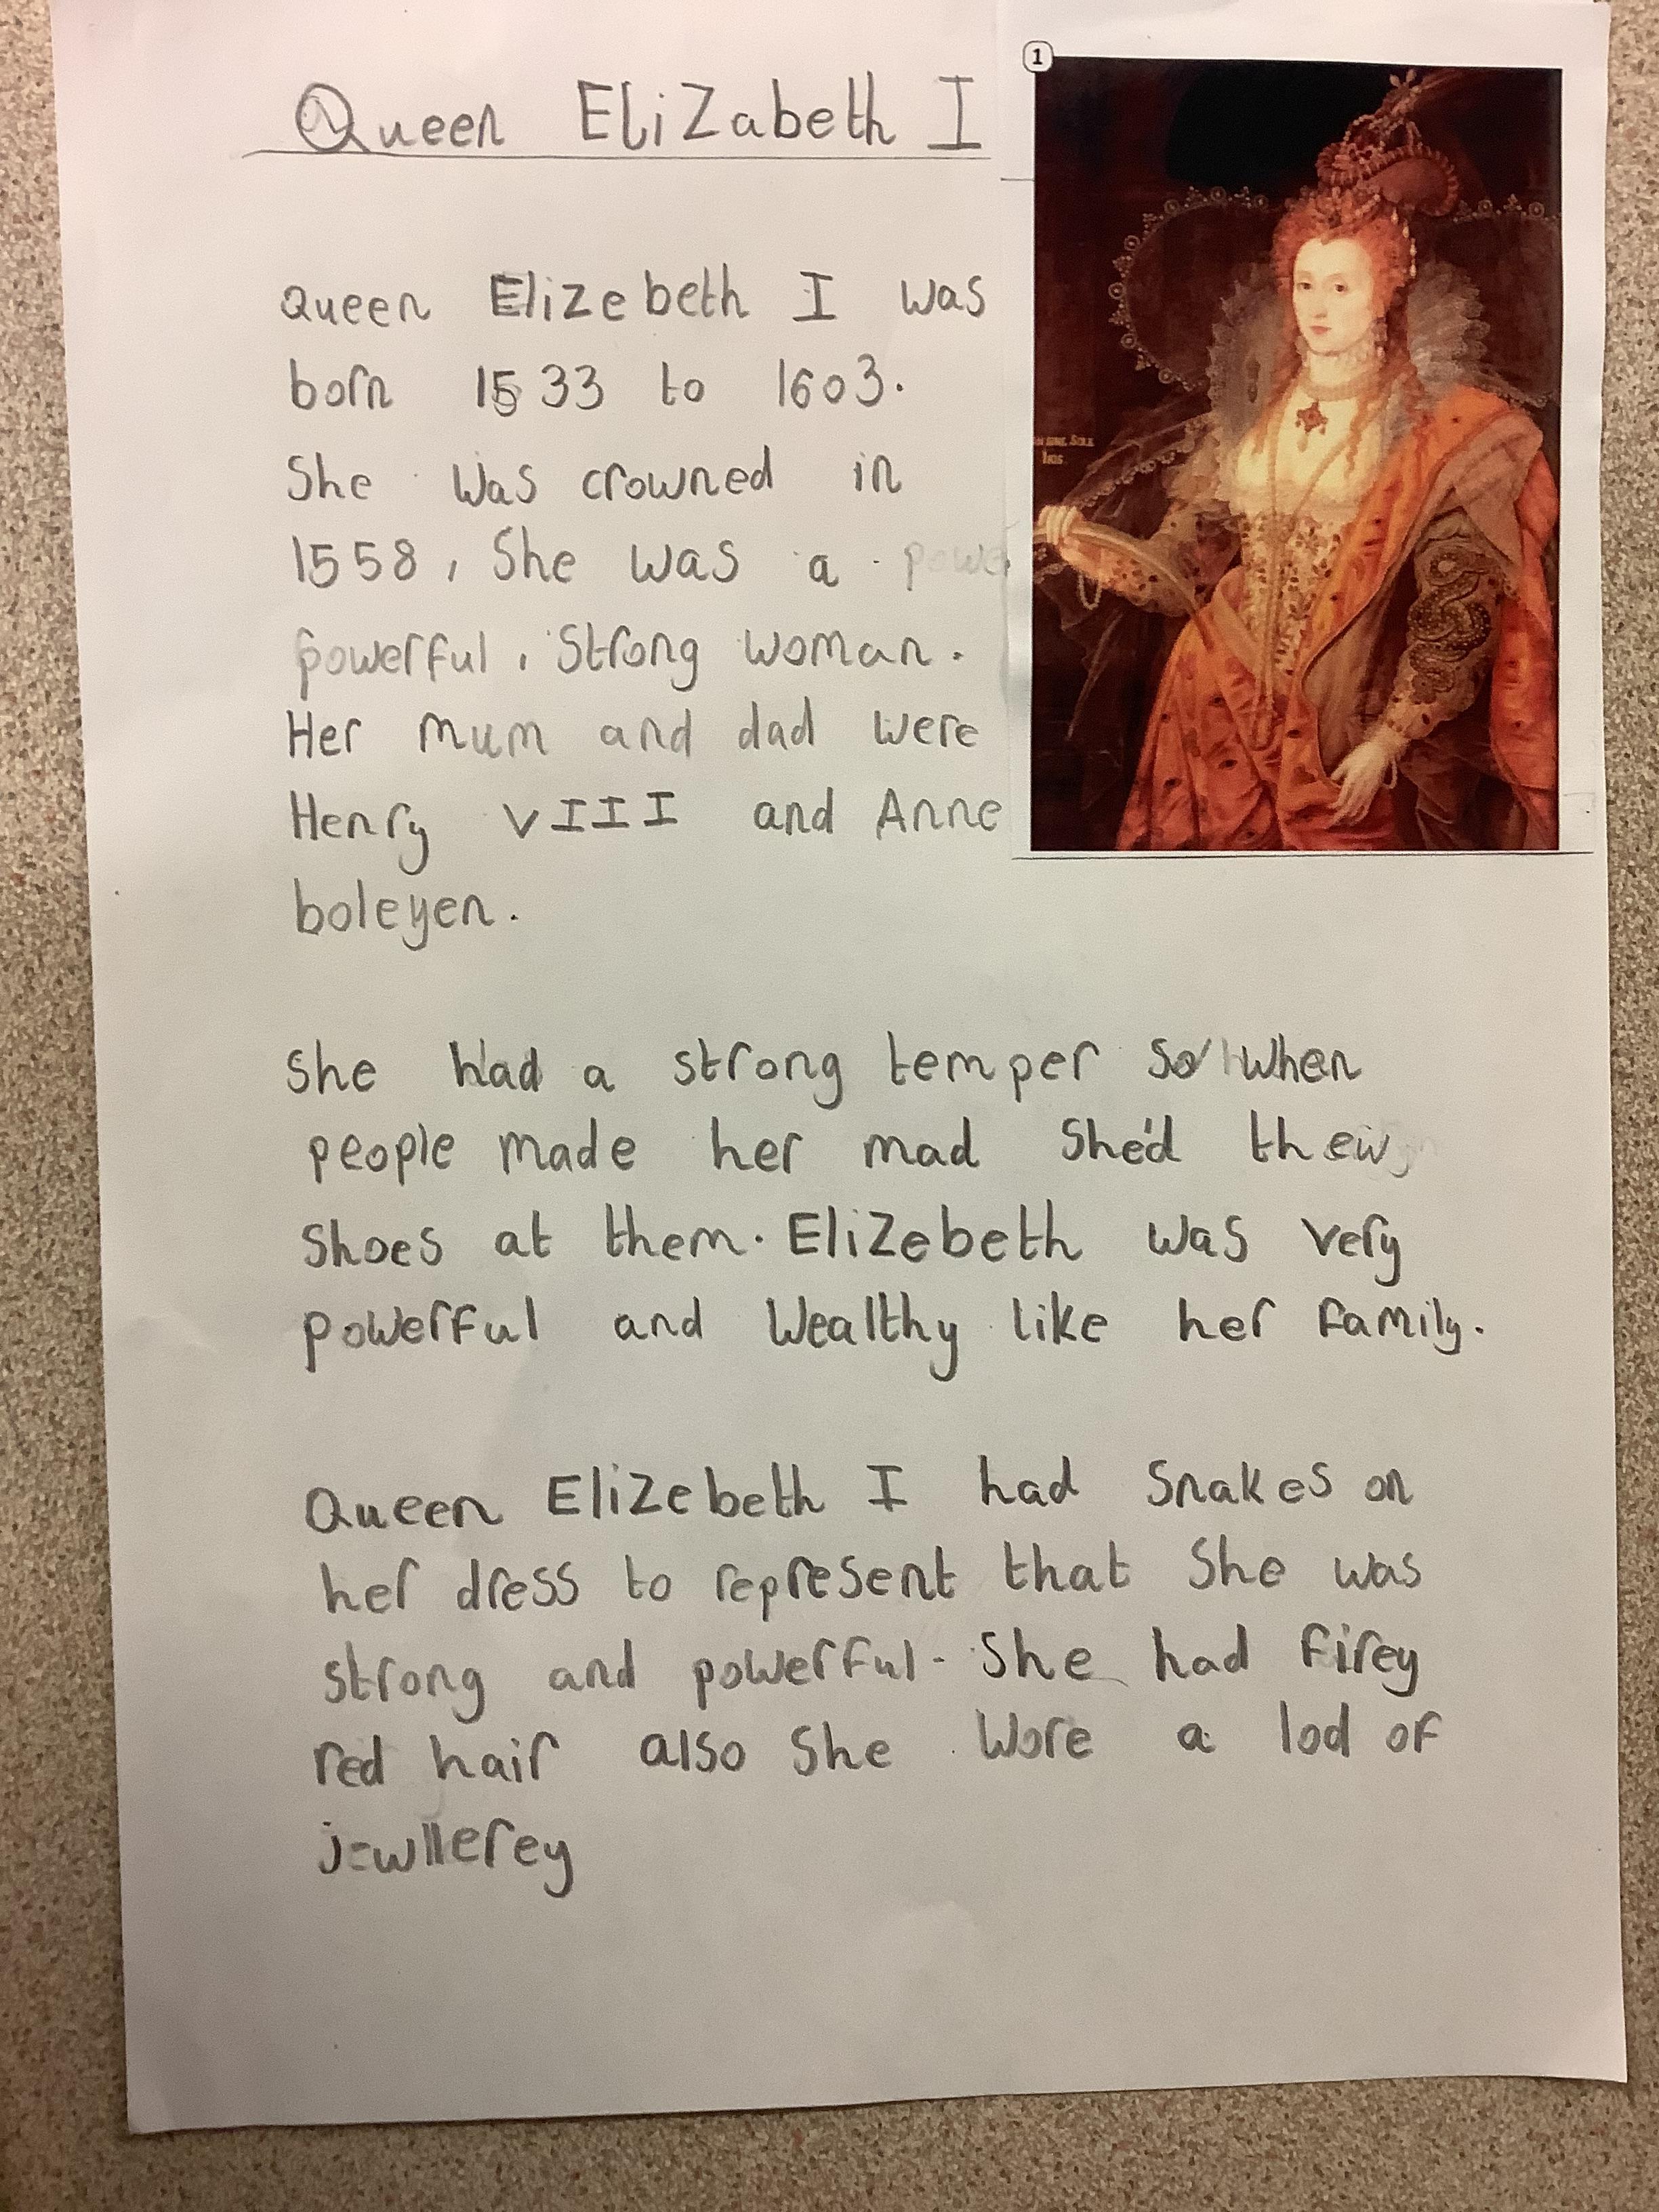 Queen Elizabeth I
1
Queen Elizebeth I was
born 1533 to 1603.
She was crowned in
1558, She was a powe
powerful, Strong woman.
Her mum and dad were
Henry VIII and Anne
boleyen.
She had a strong temper so when
people made her mad She'd thew
Shoes at them. Elizebeth was very
powerful and wealthy like her family.
Queen Elizebeth I had Snakes on
her dress to represent that She was
strong and powerful. She had firey
red hair also She wore a lod of
jewllerey